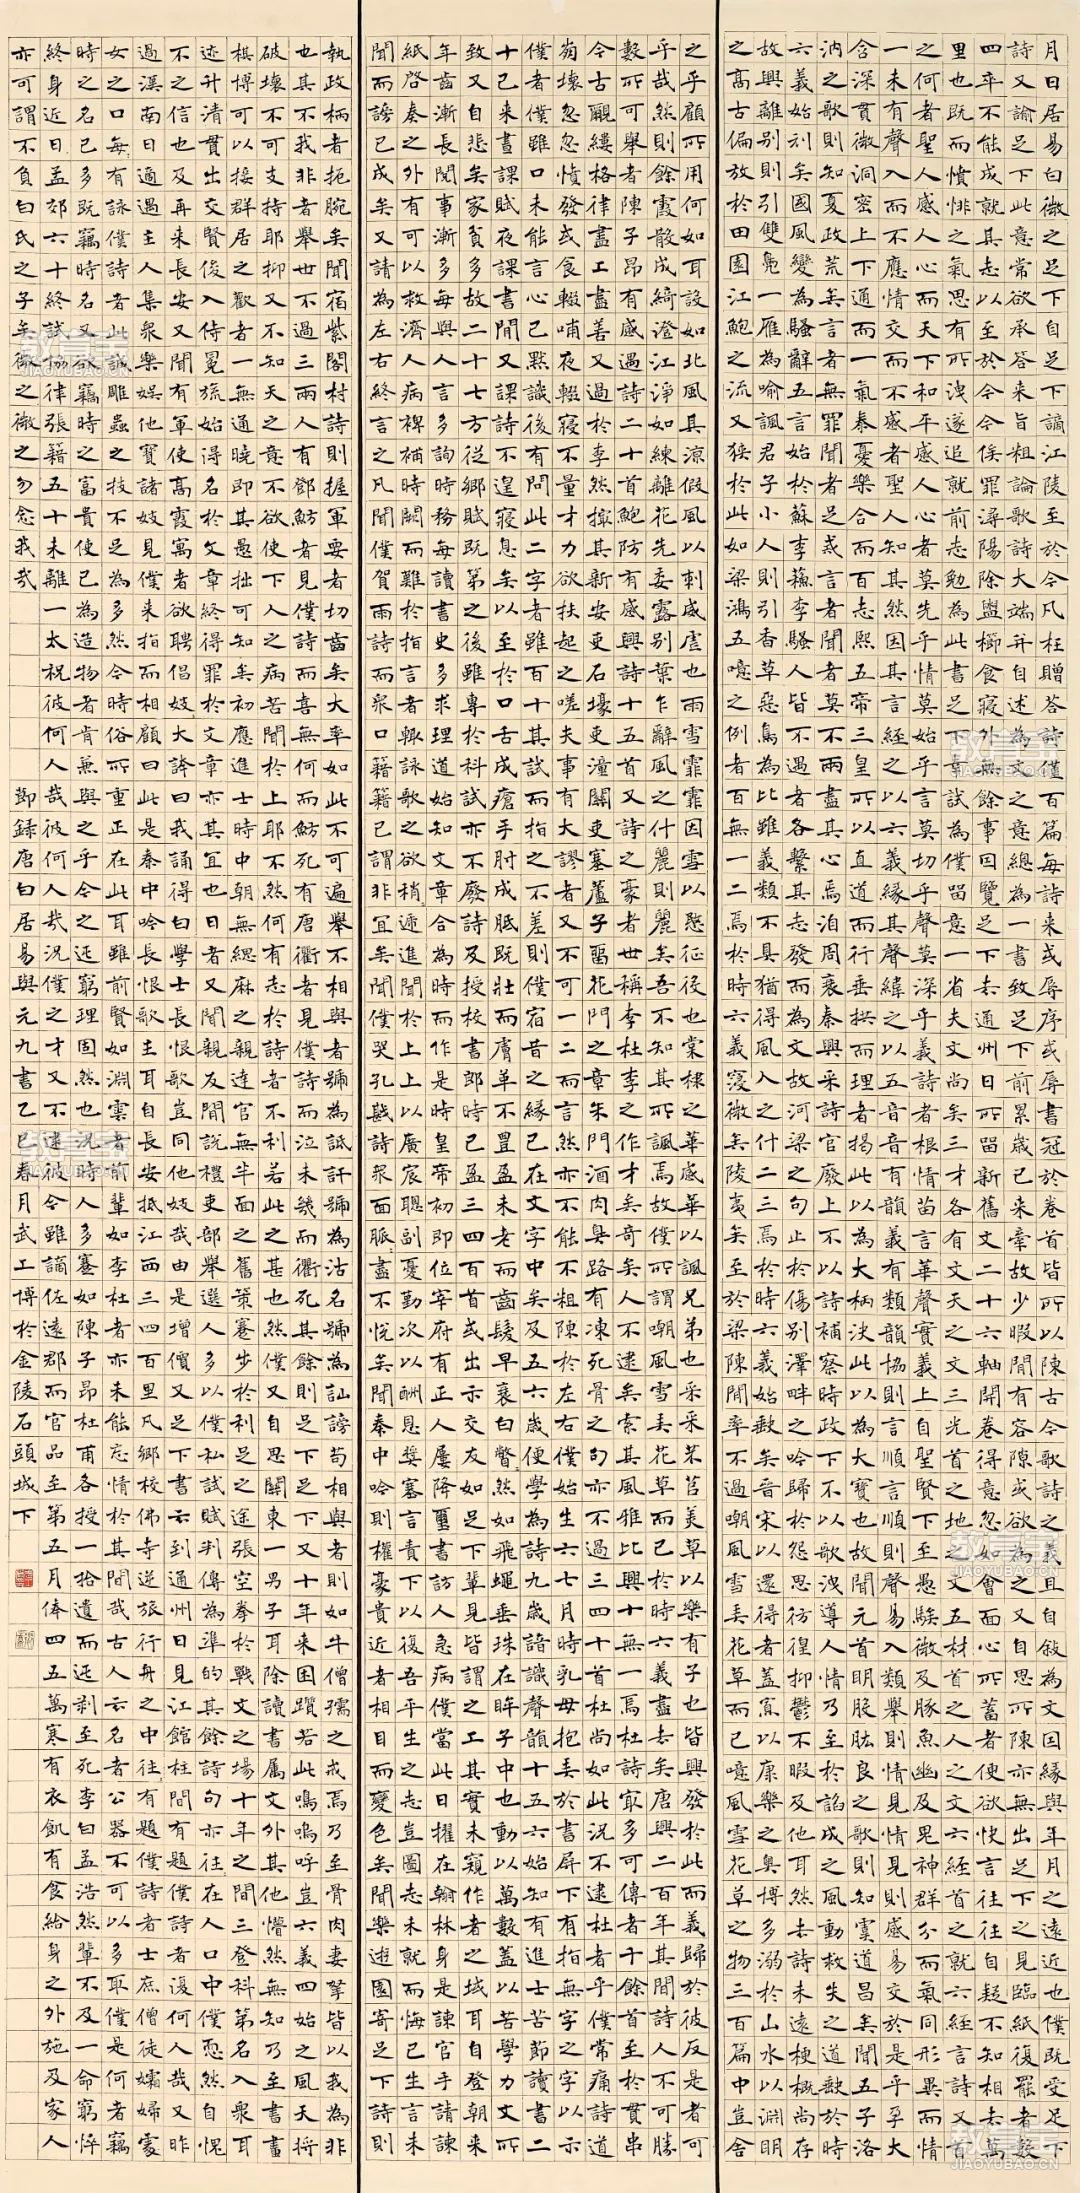 月日居易白微之足下自足下謫江陵至於今凡枉贈答詩僅百篇每詩来或辱序或辱書冠於卷首皆所以陳古今歌詩之義且自敘為文因縁與年月之遠近也僕既受足下
詩又諭足下此意常欲承答来旨粗論歌詩大端并自述為文之意總為一書致足下前累歳已来牽故少暇間有容隙或欲為之又自思所陳亦無出足下之見臨紙復罷者數
四卒不能成就其志以至於今今俟罪潯陽除盥櫛食寝外無餘事因覽足下去通州日所留新舊文二十六軸開卷得意忽如會面心所蓄者便欲快言往往自疑不知相去萬
里也既而憤悱之氣思有所洩遂追就前志勉為此書足下試為僕留意一省夫文尚矣三才各有文天之文三光首之地之文五材首之人之文六經首之就六經言詩又首
之何者聖人感人心而天下和平感人心者莫先乎情莫始乎言莫切乎聲莫深乎義詩者根情苗言華聲實義上自聖賢下至愚騃微及豚魚幽及鬼神群分而氣同形異而情
一未有聲入而不應情交而不感者聖人知其然因其言經之以六義縁其聲緯之以五音音有韻義有類韻協則言順言順則聲易入類舉則情見情見則感易交於是乎孕大
含深貫微洞密上下通而一氣泰憂樂合而百志熙五帝三皇所以直道而行垂拱而理者揭此以為大柄決此以為大寶也故聞元首明股肱良之歌則知虞道昌矣聞五子洛
汭之歌則知夏政荒矣言者無罪聞者足戒言者聞者莫不兩盡其心焉洎周衰秦興采詩官廢上不以詩補察時政下不以歌洩導人情乃至於諂成之風動救失之道歇於時
六義始刓矣國風變為騷辭五言始於蘇李蘇李騷人皆不遇者各繫其志發而為文故河梁之句止於傷別澤畔之吟歸於怨思彷徨抑鬱不暇及他耳然去詩未遠梗概尚存
故興離別則引雙鳧一雁為喻諷君子小人則引香草惡鳥為比雖義類不具猶得風人之什二三焉於時六義始缺矣晉宋以還得者蓋寡以康樂之奧博多溺於山水以淵明
之高古偏放於田園江鮑之流又狹於此如梁鴻五噫之例者百無一二焉於時六義寖微矣陵夷矣至於梁陳間率不過嘲風雪弄花草而已噫風雪花草之物三百篇中豈舍
之乎顧所用何如耳設如北風其涼假風以刺威虐也雨雪霏霏因雪以愍征役也棠棣之華感華以諷兄弟也采采芣苢美草以樂有子也皆興發於此而義歸於彼反是者可
乎哉然則餘霞散成綺澄江淨如練離花先委露別葉乍辭風之什麗則麗矣吾不知其所諷焉故僕所謂嘲風雪弄花草而已於時六義盡去矣唐興二百年其間詩人不可勝
數所可舉者陳子昂有感遇詩二十首鮑防有感興詩十五首又詩之豪者世稱李杜李之作才矣奇矣人不逮矣索其風雅比興十無一焉杜詩最多可傳者千餘首至於貫串
今古覼縷格律盡工盡善又過於李然撮其新安吏石壕吏潼關吏塞蘆子留花門之章朱門酒肉臭路有凍死骨之句亦不過三四十首杜尚如此況不逮杜者乎僕常痛詩道
崩壞忽忽憤發或食輟哺夜輟寢不量才力欲扶起之嗟夫事有大謬者又不可一二而言然亦不能不粗陳於左右僕始生六七月時乳母抱弄於書屏下有指無字之字以示
僕者僕雖口未能言心已默識後有問此二字者雖百十其試而指之不差則僕宿昔之縁已在文字中矣及五六歳便學為詩九歳諳識聲韻十五六始知有進士苦節讀書二
十已来晝課賦夜課書間又課詩不遑寢息矣以至於口舌成瘡手肘成胝既壯而膚革不豐盈未老而齒髮早衰白瞥然如飛蠅垂珠在眸子中也動以萬數蓋以苦學力文所
致又自悲矣家貧多故二十七方從鄉賦既第之後雖專於科試亦不廢詩及授校書郎時已盈三四百首或出示交友如足下輩見皆謂之工其實未窺作者之域耳自登朝来
年齒漸長閱事漸多每與人言多詢時務每讀書史多求理道始知文章合為時而作是時皇帝初即位宰府有正人屢降璽書訪人急病僕當此日擢在翰林身是諫官手請諫
紙啓奏之外有可以救濟人病裨補時闕而難於指言者輒詠歌之欲稍遞進聞於上上以廣宸聰副憂勤次以酬恩獎塞言責下以復吾平生之志豈圖志未就而悔已生言未
聞而謗已成矣又請為左右終言之凡聞僕賀雨詩而衆口籍籍已謂非宜矣聞僕哭孔戡詩衆面脈盡不悅矣聞秦中吟則權豪貴近者相目而變色矣聞樂遊園寄足下詩則
執政柄者扼腕矣聞宿紫閣村詩則握軍要者切齒矣大率如此不可遍舉不相與者號為詆訐號為沽名號為訕謗苟相與者則如牛僧孺之戒焉乃至骨肉妻孥皆以我為非
也其不我非者舉世不過三兩人有鄧魴者見僕詩而喜無何而魴死有唐衢者見僕詩而泣未幾而衢死其餘則足下足下又十年来困躓若此嗚呼豈六義四始之風天將
破壞不可支持耶抑又不知天之意不欲使下人之病苦聞於上耶不然何有志於詩者不利若此之甚也然僕又自思關東一男子耳除讀書屬文外其他懵然無知乃至書畫
棋博可以接群居之歡者一無通曉即其愚拙可知矣初應進士時中朝無緦麻之親達官無半面之舊策蹇步於利足之途張空拳於戰文之場十年之間三登科第名入衆耳
迹升清貫出交賢俊入侍冕旒始得名於文章終得罪於文章亦其宜也日者又聞親友間說禮吏部舉選人多以僕私試賦判傳為準的其餘詩句亦往往在人口中僕恧然自愧
不之信也及再来長安又聞有軍使高霞寓者欲聘倡妓妓大誇曰我誦得白學士長恨歌豈同他妓哉由是增價又足下書云到通州日見江館柱間有題僕詩者復何人哉又昨
過漢南日適遇主人集衆樂娛他賓諸妓見僕来指而相顧曰此是秦中吟長恨歌主耳自長安抵江西三四百里凡鄉校佛寺逆旅行舟之中往往有題僕詩者士庶僧徒孀婦處
女之口每有詠僕詩者此誠雕蟲之技不足為多然今時俗所重正在此耳雖前賢如淵雲者前輩如李杜者亦未能忘情於其間哉古人云名者公器不可以多取僕是何者竊
時之名已多既竊時名又欲竊時之富貴使已為造物者肯兼與之乎今之迍窮理固然也況時人多蹇如陳子昂杜甫各授一拾遺而迍剥至死李白孟浩然輩不及一命窮悴
終身近日孟郊六十終試協律張籍五十未離一太祝彼何人哉彼何人哉況僕之才又不逮彼今雖謫佐遠郡而官品至第五月俸四五萬寒有衣飢有食給身之外施及家人
亦可謂不負白氏之子矣微之微之勿念我哉
節録唐白居易與元九書乙巳春月武工博於金陵石頭城下
教育宝
JIAOYUBAO.CN